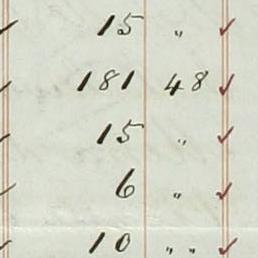 ✓ 15 " ✓
✓ 181 48 ✓
✓ 15 " ✓
✓ 6 " ✓
✓ 10 " " ✓